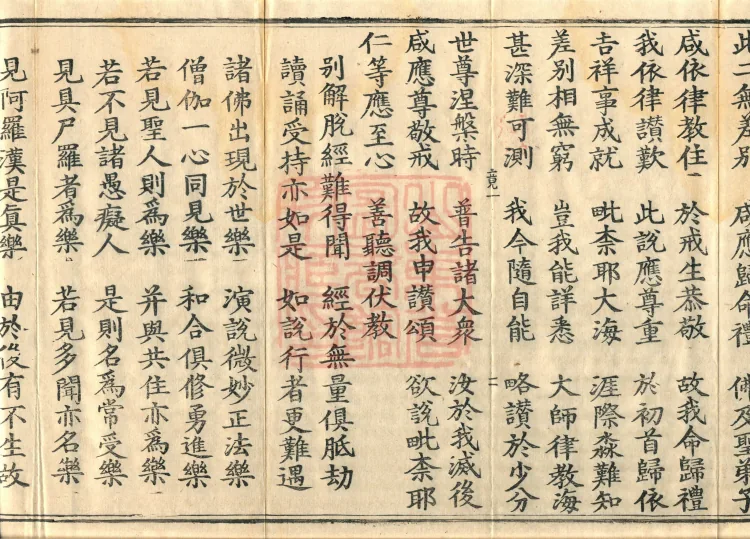 此二無差別　咸應歸命禮　佛及聖弟子
咸依律教住　於戒生恭敬　故我命歸禮
我依律讚歎　此說應尊重　於初首歸依
吉祥事成就　毗柰耶大海　涯際淼難知
差別相無窮　豈我能詳悉　大師律教海
甚深難可測　我今隨自能　略讚於少分
竟一　二
世尊涅槃時　普告諸大衆　汝於我滅後
咸應尊敬戒　故我申讚頌　欲說毗柰耶
仁等應至心　善聽調伏教
別解脫經難得聞　經於無量俱胝劫
讀誦受持亦如是　如說行者更難遇
諸佛出現於世樂　演說微妙正法樂
僧伽一心同見樂　和合俱修勇進樂
若見聖人則爲樂　并與共住亦爲樂
若不見諸愚癡人　是則名爲常受樂
見具尸羅者爲樂　若見多聞亦名樂
見阿羅漢是眞樂　由於後有不生故